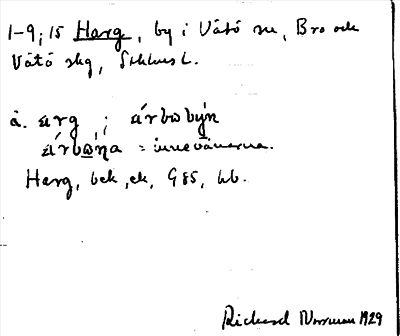 1-9; 15 Harg, by i Vätö sn, Bro och
Vätö skg, Sthlms l.
å. arg ; árbωby̆n
árbωna = innevånarna.
Harg, bek, ek, G85, bb.
Richard Norrman 1929